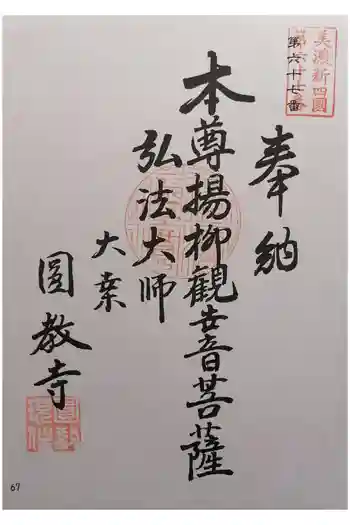 美濃新四國
第六十七番
奉納
本尊揚柳觀世音菩薩
弘法大师
大業
圓教寺
67